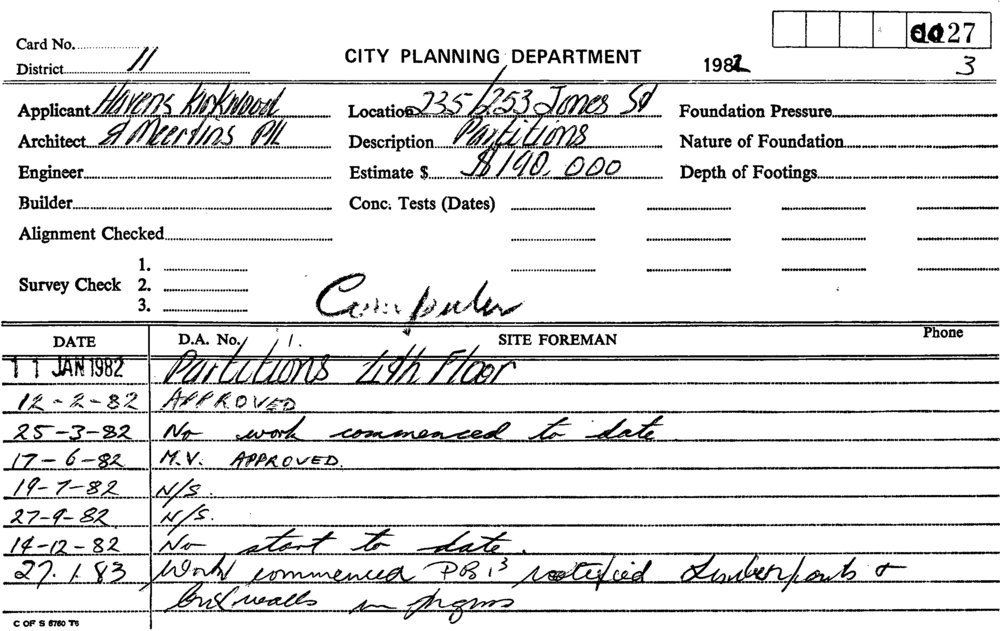 27
Card No.
District 11
CITY PLANNING DEPARTMENT
1982
3
Applicant Havens Kirkwood
Location 235/253 Jones St
Foundation Pressure
Architect Meertins P/L
Description Partitions
Nature of Foundation
Engineer
Estimate $ $190,000
Depth of Footings
Builder
Conc. Tests (Dates)
Alignment Checked
Survey Check 1.
2.
3.
Computer
DATE D.A. No. SITE FOREMAN Phone
11 JAN 1982 Partitions 4th Floor
12-2-82 APPROVED
25-3-82 No work commenced to date
17-6-82 M.V. APPROVED.
19-7-82 N/S.
27-9-82 N/S.
14-12-82 No start to date.
27.1.83 Work commenced
walls in
C OF S 5760 T6